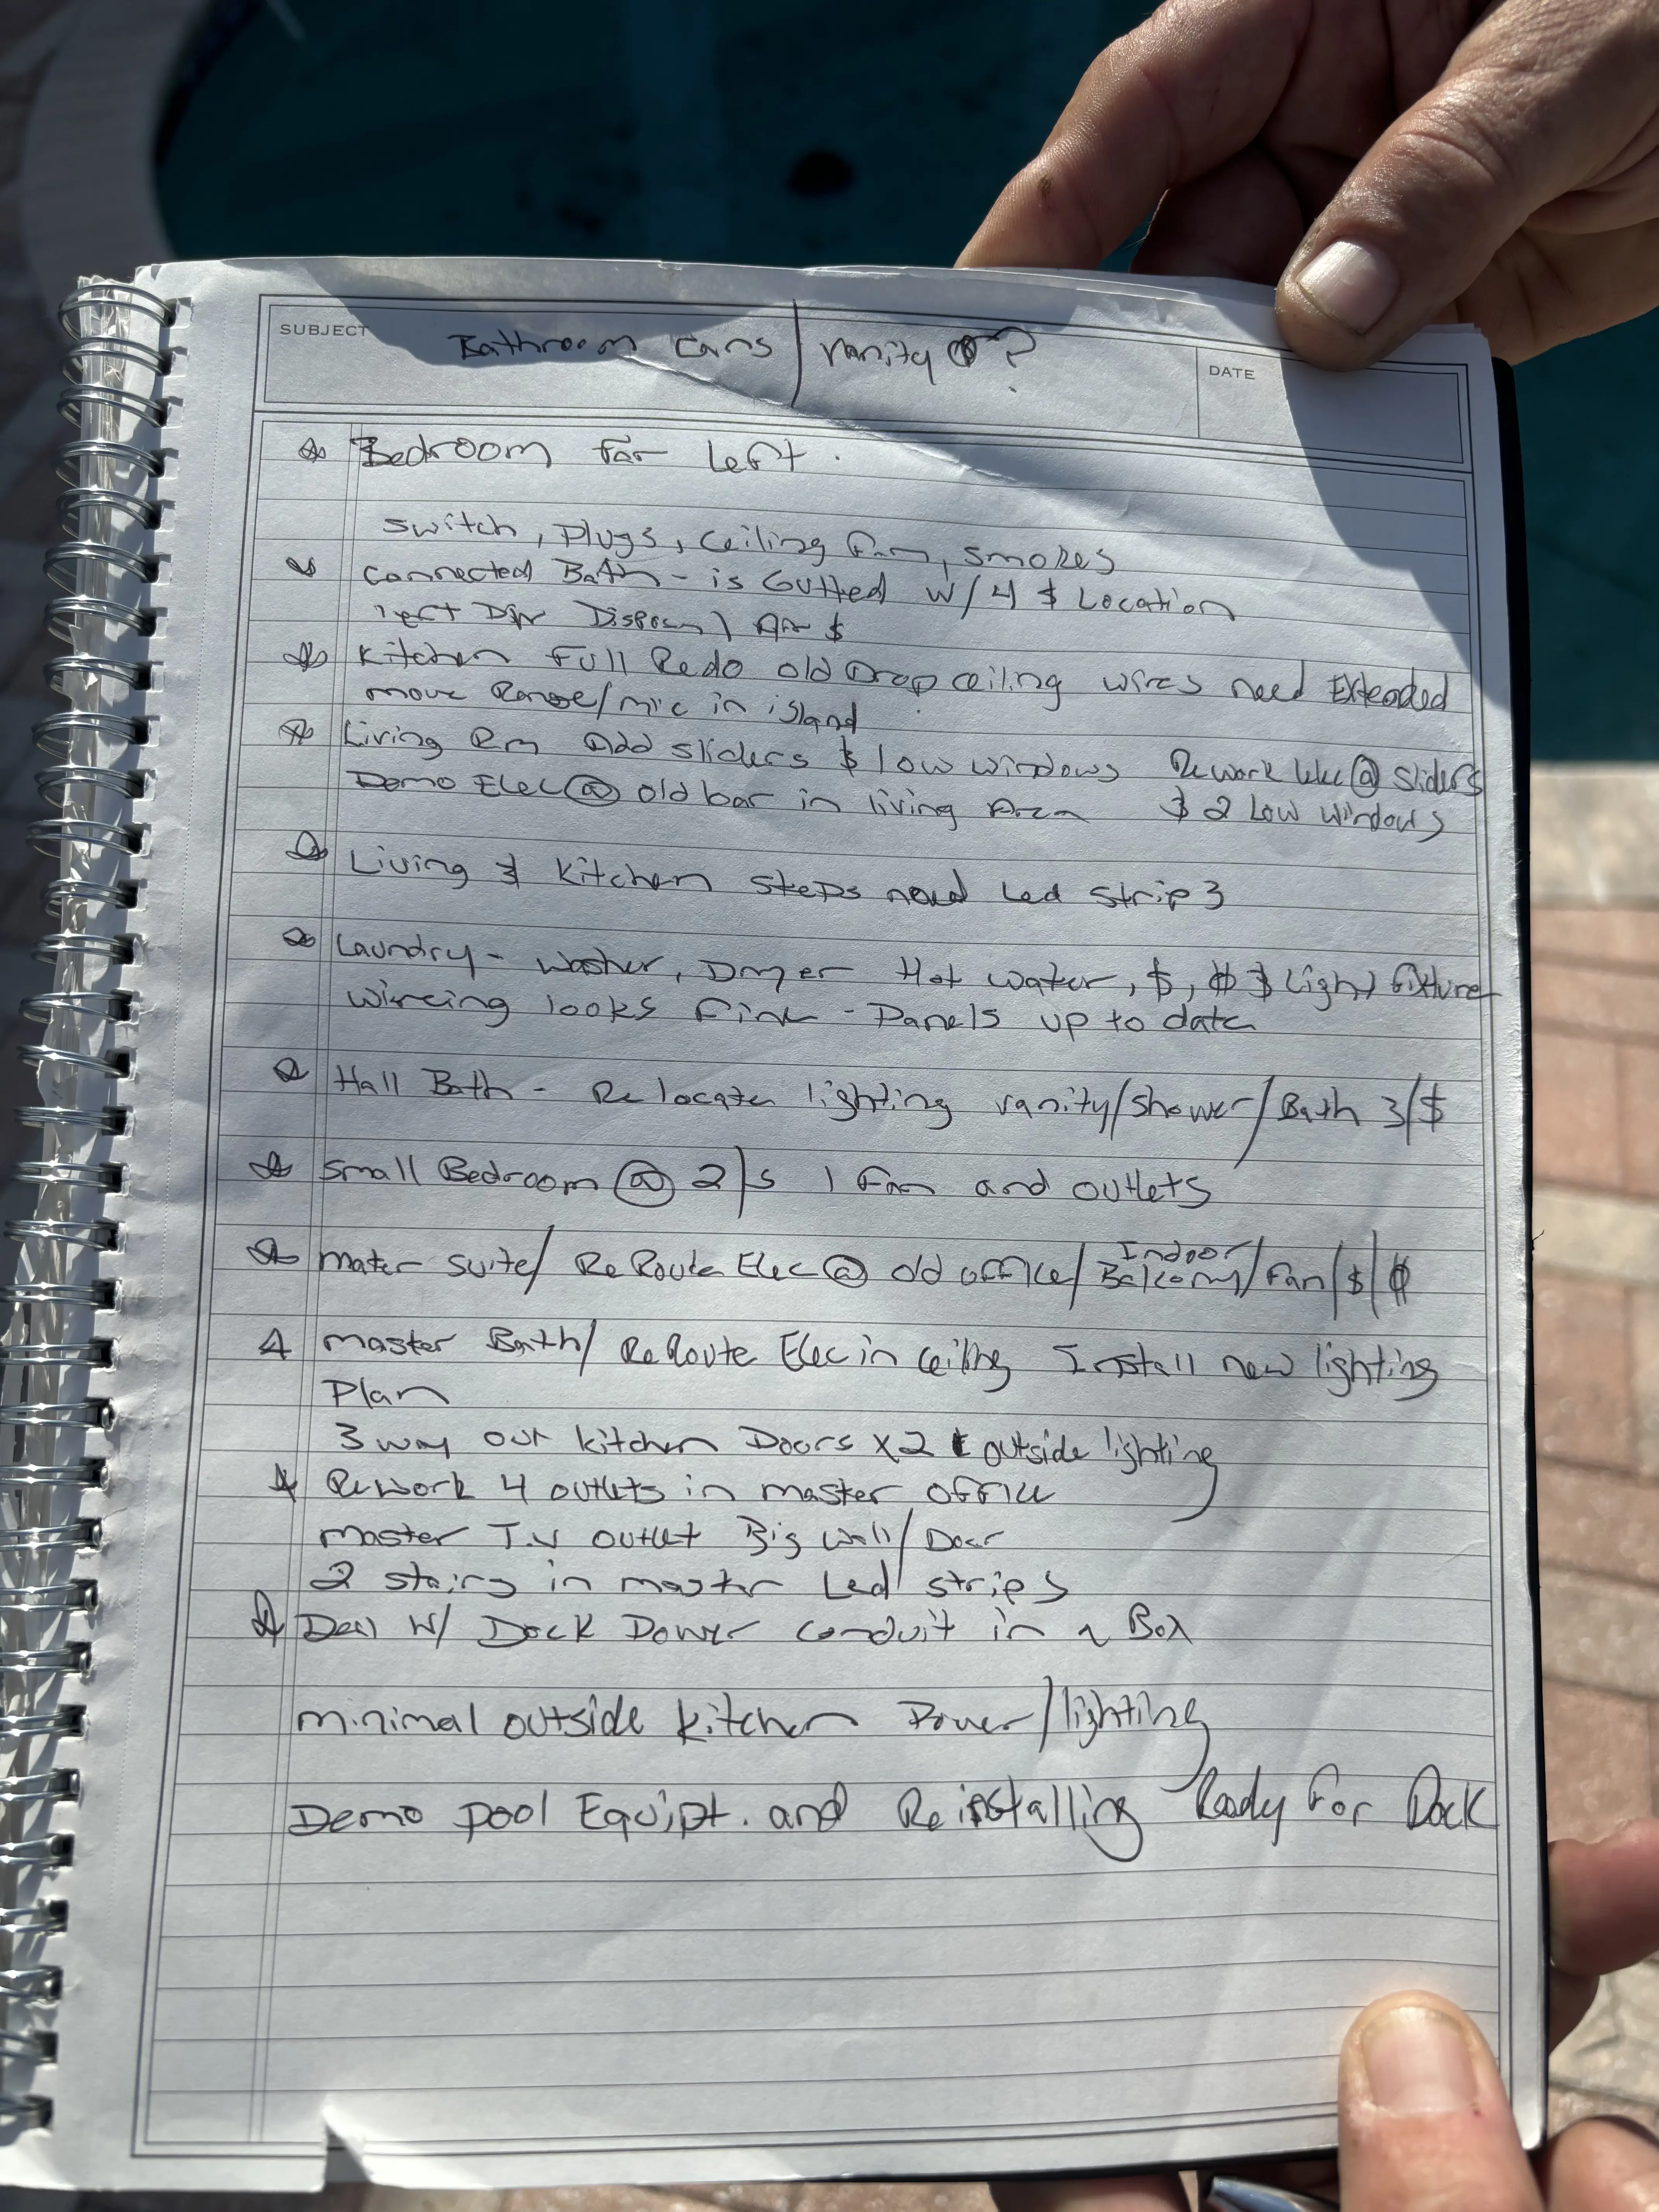 SUBJECT Bathroom cans / vanity ?
DATE
Bedroom far Left.
switch, Plugs, ceiling fan, smokes
connected Bath - is Gutted w/ 4 $ Location
$
Kitchen Full Redo old Drop ceiling wires need Extended
move Range/mic in island
Living Rm Add sliders $ low windows Rework elec @ sliders
Demo Elec @ old bar in living Area $ 2 Low windows
Living & Kitchen steps need Led strips
Laundry - washer, Dryer Hot water, $, $ $ Light fixture
wireing looks fine - Panels up to date
Hall Bath - Relocate lighting vanity/shower/Bath 3/$
small Bedroom @ 2/s 1 Fan and outlets
mater suite/ ReRoute Elec @ old office/ Indoor Balcony/Fan/$/$
master Bath/ ReRoute Elec in ceiling Install new lighting
Plan
3 way out kitchen Doors x2 & outside lighting
Rework 4 outlets in master office
master T.V outlet Big wall/Door
2 stairs in master Led strips
Deal w/ Dock Power conduit in a Box
minimal outside kitchen Power/lighting
Demo pool Equipt. and Reinstalling Ready For Dock